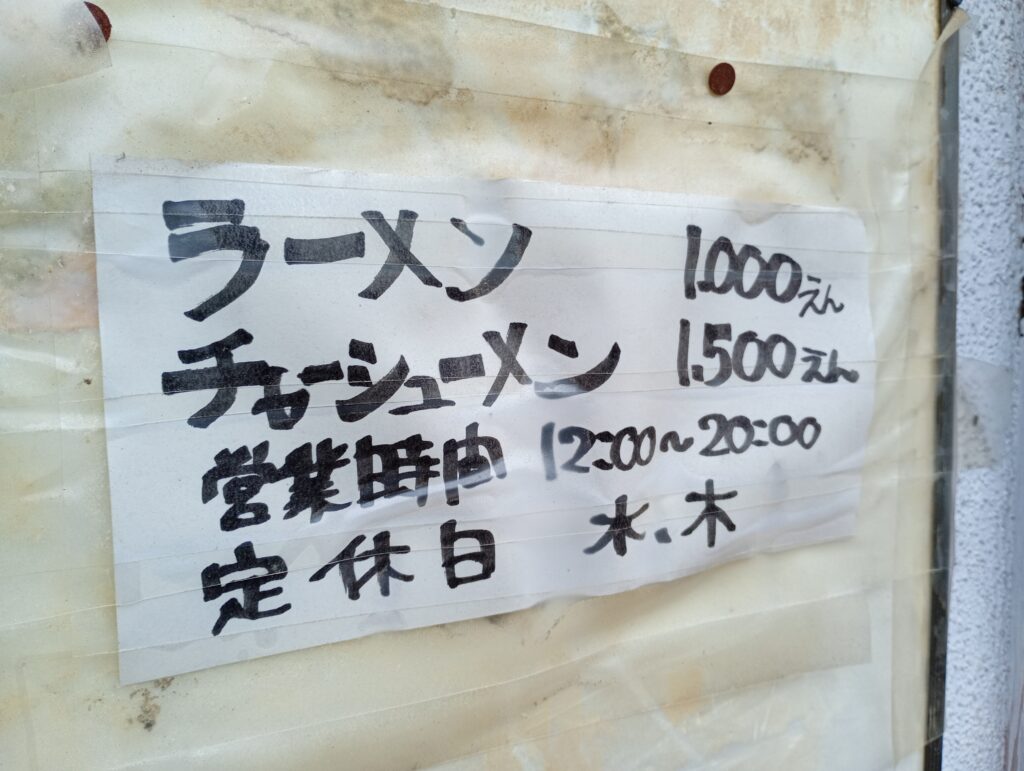 ラーメン 1.000えん
チャーシューメン 1.500えん
営業時間 12:00~20:00
定休日 水、木